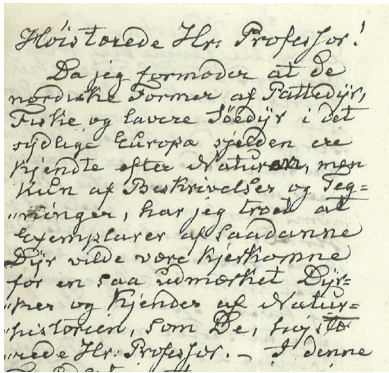 Höistærede Hr. Professor!
Da jeg formoder at de
nordiske Former af Pattedÿr,
Fiske og lavere Söedÿr i det
sydlige Europa sjelden ere
kjendte efter Naturen, men
kun af Beskrivelser og Teg-
"ninger, har jeg troet at
Exemplarer af saadanne
Dÿr vilde være kjerkomne
for en saa udmærket Dÿr-
"ker og Kjender af Natur-
"historien, som De, høistæ-
"rede Hr. Professor. – I denne